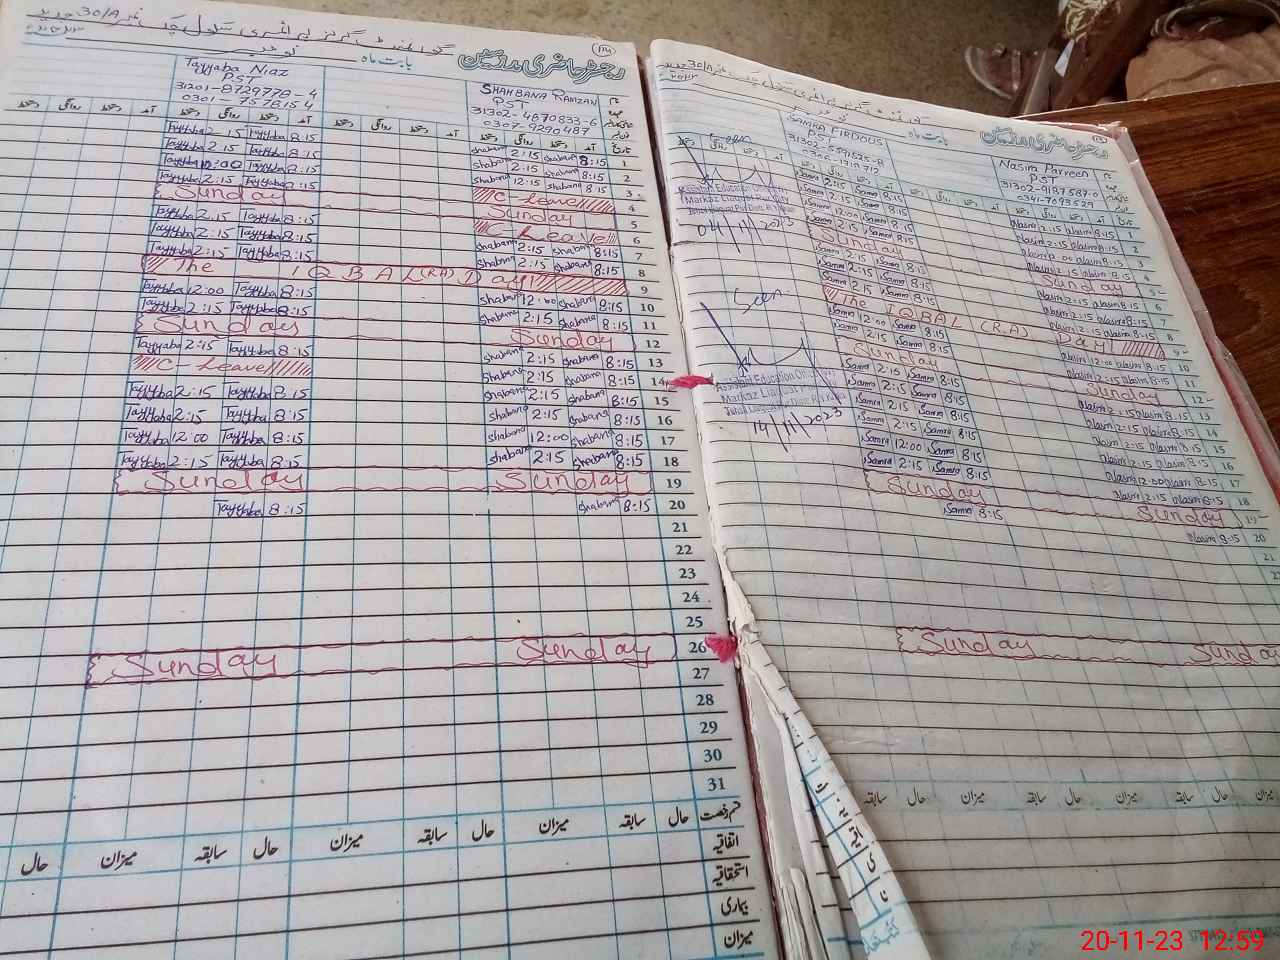 رجسٹر حاضری مدرسین
بابت ماہ نومبر
Tayyaba Niaz SHAHBANA RAMZAN
PST PST
31201-8729778-4 31302-4870833-6
0301-7578154 0307-9290487
Tayyaba 2:15 Tayyaba 8:15 Shabana 2:15 Shabana 8:15 1
Tayyaba 2:15 Tayyaba 8:15 Shabana 2:15 Shabana 8:15 2
Tayyaba 12:00 Tayyaba 8:15 Shabana 12:15 Shabana 8:15 3
Tayyaba 2:15 Tayyaba 8:15 C-Leave 4
Sunday Sunday 5
Tayyaba 2:15 Tayyaba 8:15 C-Leave 6
Tayyaba 2:15 Tayyaba 8:15 Shabana 2:15 Shabana 8:15 7
Tayyaba 2:15 Tayyaba 8:15 Shabana 2:15 Shabana 8:15 8
The IQBAL (R.A) Day 9
Tayyaba 12:00 Tayyaba 8:15 Shabana 12:00 Shabana 8:15 10
Tayyaba 2:15 Tayyaba 8:15 Shabana 2:15 Shabana 8:15 11
Sunday Sunday 12
Tayyaba 2:15 Tayyaba 8:15 Shabana 2:15 Shabana 8:15 13
C-Leave Shabana 2:15 Shabana 8:15 14
Tayyaba 2:15 Tayyaba 8:15 Shabana 2:15 Shabana 8:15 15
Tayyaba 2:15 Tayyaba 8:15 Shabana 2:15 Shabana 8:15 16
Tayyaba 12:00 Tayyaba 8:15 Shabana 12:00 Shabana 8:15 17
Tayyaba 2:15 Tayyaba 8:15 Shabana 2:15 Shabana 8:15 18
Sunday Sunday 19
Tayyaba 8:15 Shabana 8:15 20
21
22
23
24
25
Sunday Sunday 26
27
28
29
30
31
قسم رخصت حال سابقہ میزان حال سابقہ میزان حال سابقہ میزان حال
اتفاقیہ
استحقاقیہ
بیماری
میزان
رجسٹر حاضری مدرسین
بابت ماہ
SAMRA FIRDOUS Nasim Parveen
PST PST
31302-9187587-0
0341-7093529
Seen
Assistant Education Officer
Markaz Liaqat Pur City
04/11/2023
Seen
Assistant Education Officer
Markaz Liaqat Pur City
14/11/2023
Samra 2:15 Samra 8:15 Nasim 2:15 Nasim 8:15 1
Samra 2:15 Samra 8:15 Nasim 2:15 Nasim 8:15 2
Samra 12:00 Samra 8:15 Nasim 12:00 Nasim 8:15 3
Samra 2:15 Samra 8:15 Nasim 2:15 Nasim 8:15 4
Sunday Sunday 5
Samra 2:15 Samra 8:15 Nasim 2:15 Nasim 8:15 6
Samra 2:15 Samra 8:15 Nasim 2:15 Nasim 8:15 7
Samra 2:15 Samra 8:15 Nasim 2:15 Nasim 8:15 8
The IQBAL (R.A) Day 9
Samra 12:00 Samra 8:15 Nasim 12:00 Nasim 8:15 10
Samra 2:15 Samra 8:15 Nasim 2:15 Nasim 8:15 11
Sunday Sunday 12
Samra 2:15 Samra 8:15 Nasim 2:15 Nasim 8:15 13
Samra 2:15 Samra 8:15 Nasim 2:15 Nasim 8:15 14
Samra 2:15 Samra 8:15 Nasim 2:15 Nasim 8:15 15
Samra 2:15 Samra 8:15 Nasim 2:15 Nasim 8:15 16
Samra 12:00 Samra 8:15 Nasim 12:00 Nasim 8:15 17
Samra 2:15 Samra 8:15 Nasim 2:15 Nasim 8:15 18
Sunday Sunday 19
Samra 8:15 Nasim 8:15 20
21
Sunday Sunday
میزان حال سابقہ میزان حال سابقہ میزان حال سابقہ
20-11-23 12:59